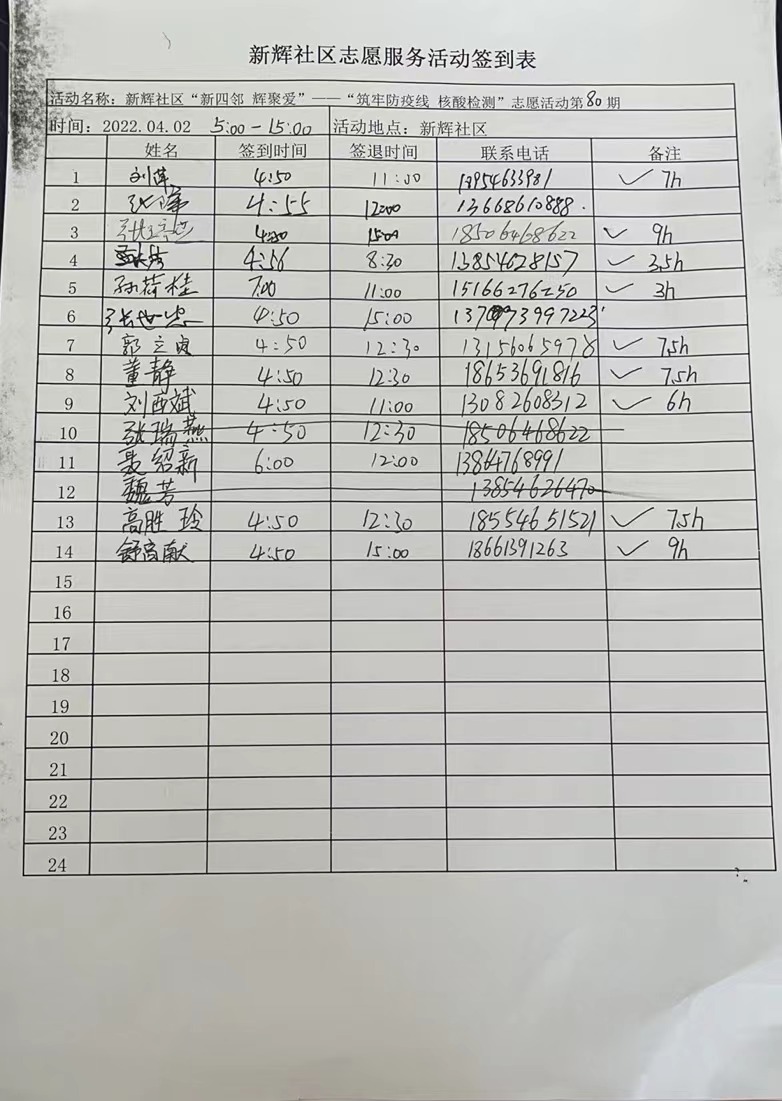 新辉社区志愿服务活动签到表
活动名称：新辉社区“新四邻 辉聚爱”——“筑牢防疫线 核酸检测”志愿活动第80期
时间：2022.04.02 5:00-15:00 活动地点：新辉社区
姓名 签到时间 签退时间 联系电话 备注
1 刘萍 4:50 11:00 18954633981 ✓ 7h
2 4:55 12:00 13668610888
3 4:30 15:00 18506468622 ✓ 9h
4 4:56 8:30 13854628157 ✓ 3.5h
5 孙荷桂 7:00 11:00 15166276250 ✓ 3h
6 张世忠 4:50 15:00
7 郭立贞 4:50 12:30 13156065978 ✓ 7.5h
8 董静 4:50 12:30 18653691816 ✓ 7.5h
9 刘西斌 4:50 11:00 13082608312 ✓ 6h
10 张瑞燕 4:50 12:30 18506468622
11 聂绍新 6:00 12:00 13864768991
12 魏芳 13854626470
13 高胜玲 4:50 12:30 18554651521 ✓ 7.5h
14 舒高献 4:50 15:00 18661391263 ✓ 9h
15
16
17
18
19
20
21
22
23
24